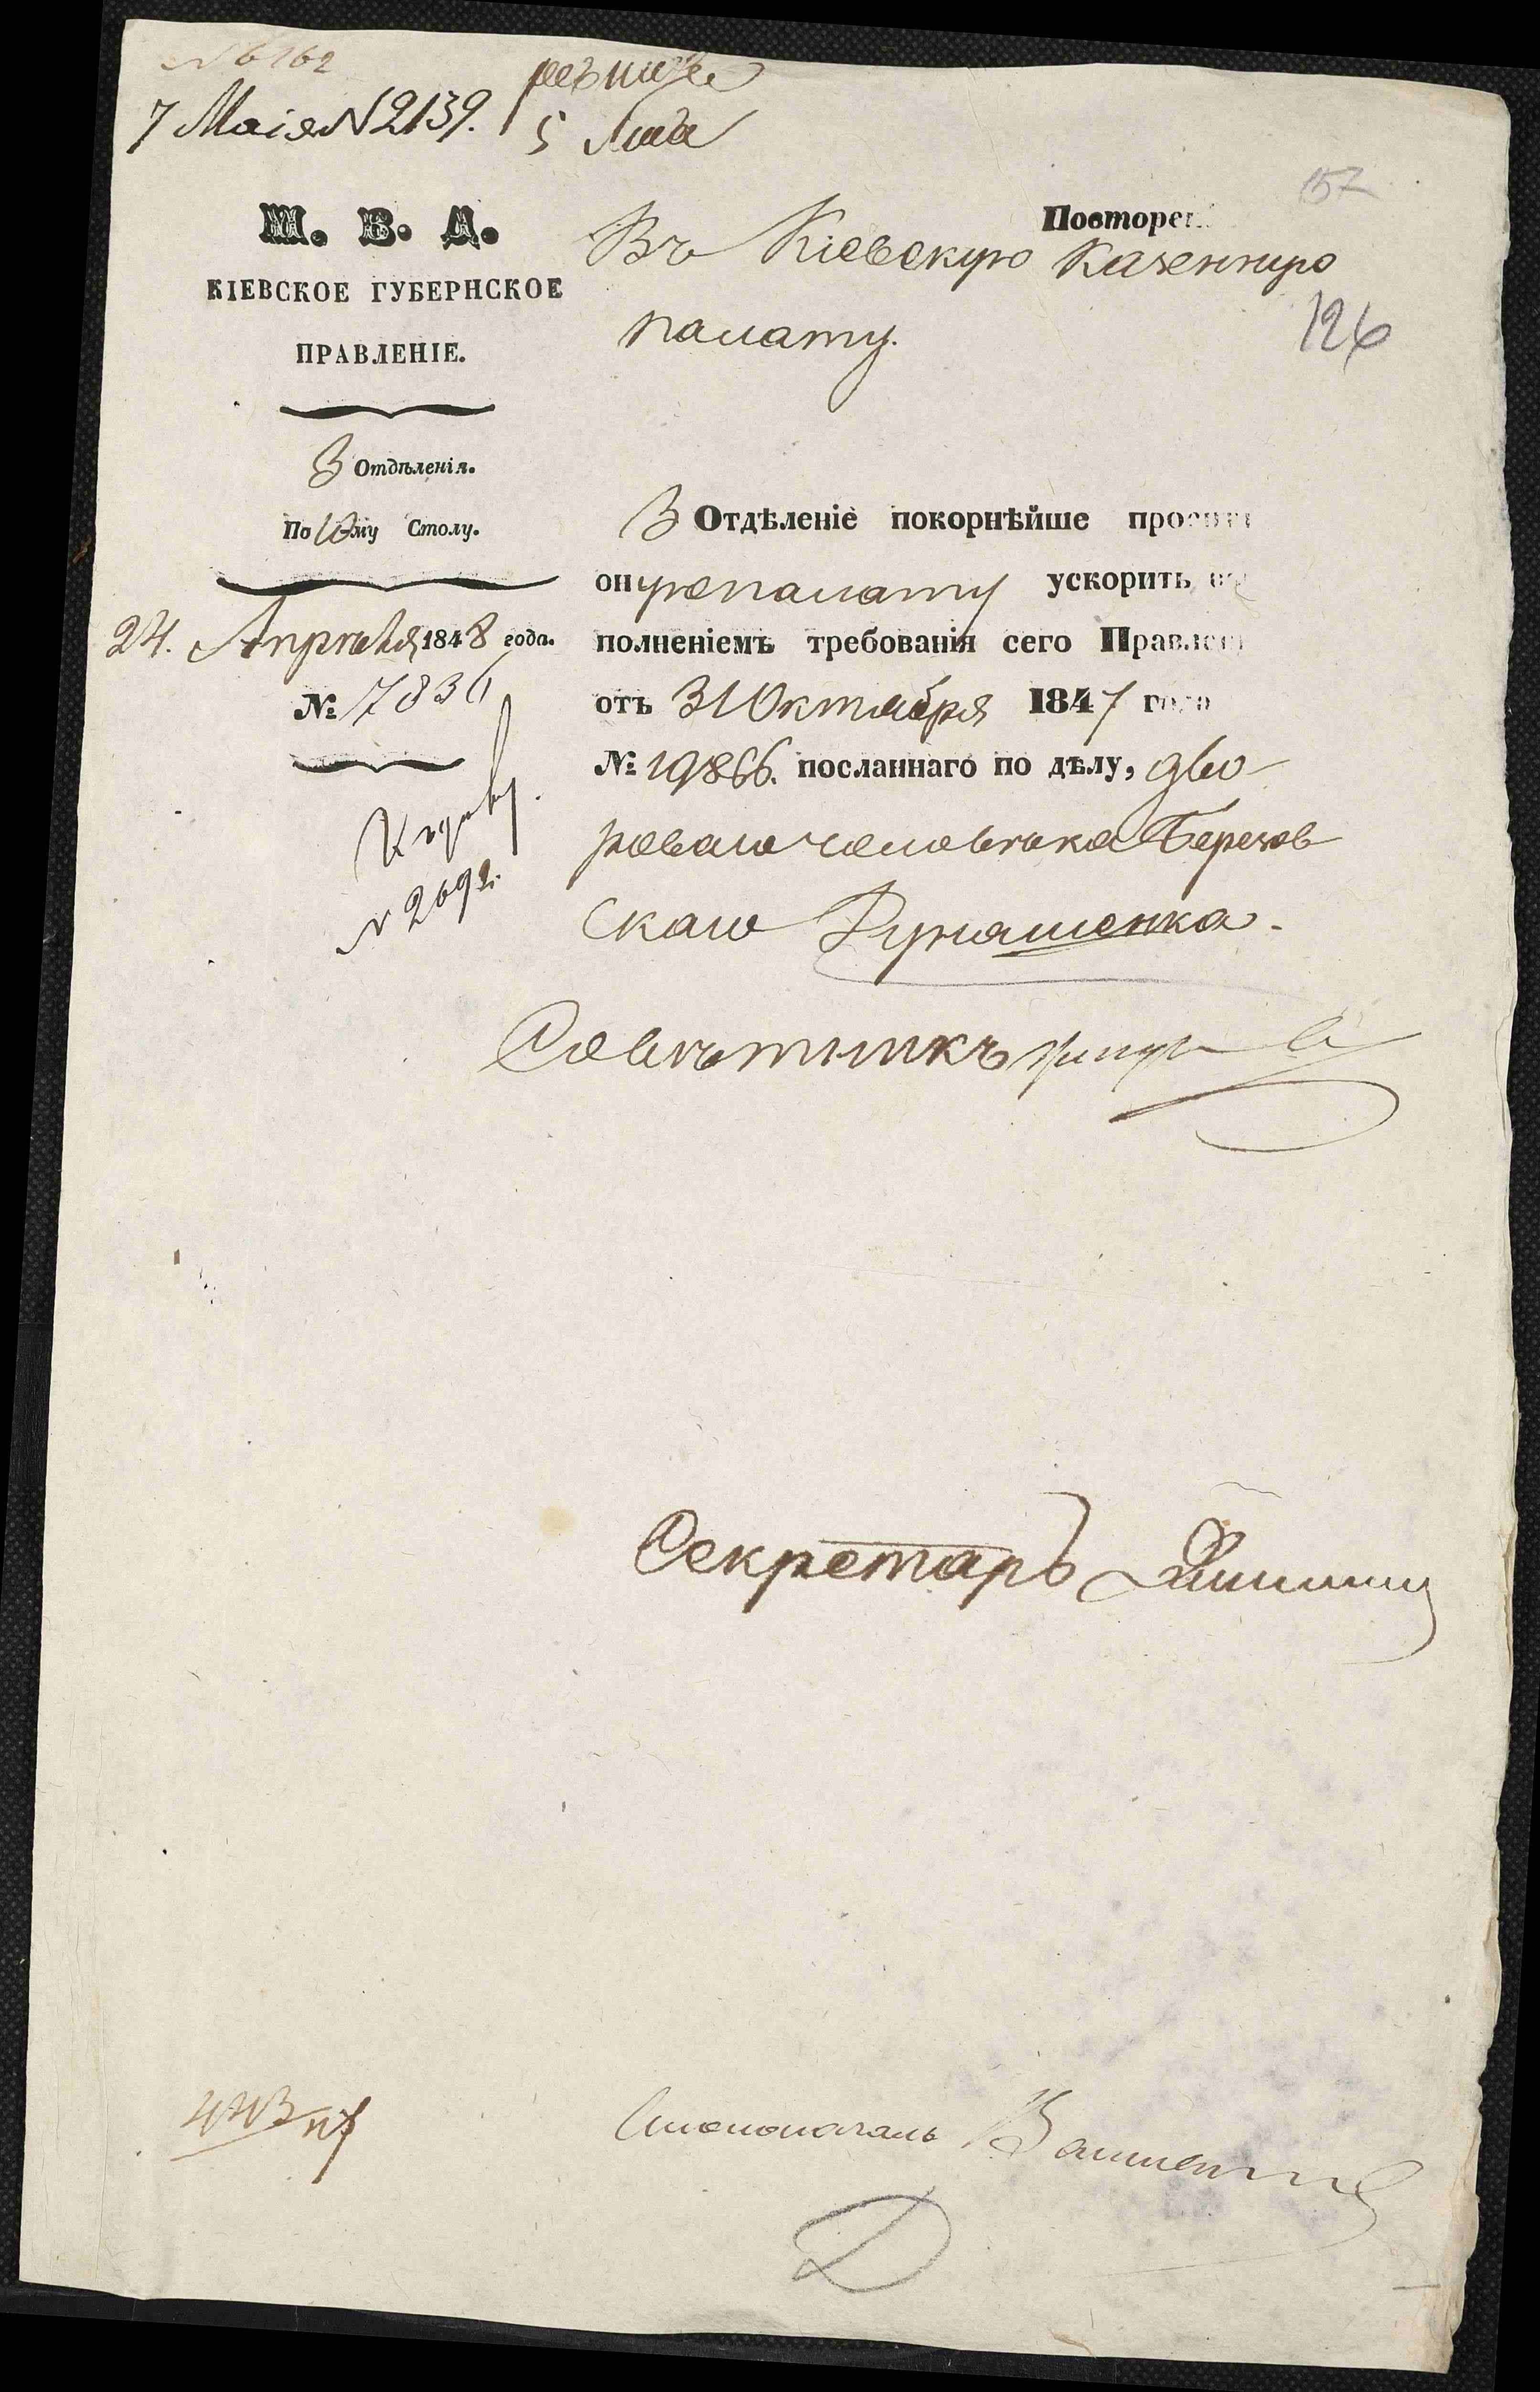 № 6162
7 Маія № 2139.
157
М. В. Д.
КІЕВСКОЕ ГУБЕРНСКОЕ
ПРАВЛЕНІЕ.
3 Отдѣленія.
По му Столу.
24. Апрѣля 1848 года.
№ 7836
№ 2692.
Повторен
Въ Кіевскую Казенную
палату.
126
3 Отдѣленіе покорнѣйше просит
оную палату ускорить
полненіемъ требованія сего Правлен
отъ 31 Октября 1847 года
№ 19866. посланнаго по дѣлу, дво-
роваго человѣка Березов
скаго
Совѣтникъ
Секретарь
Столоначаль